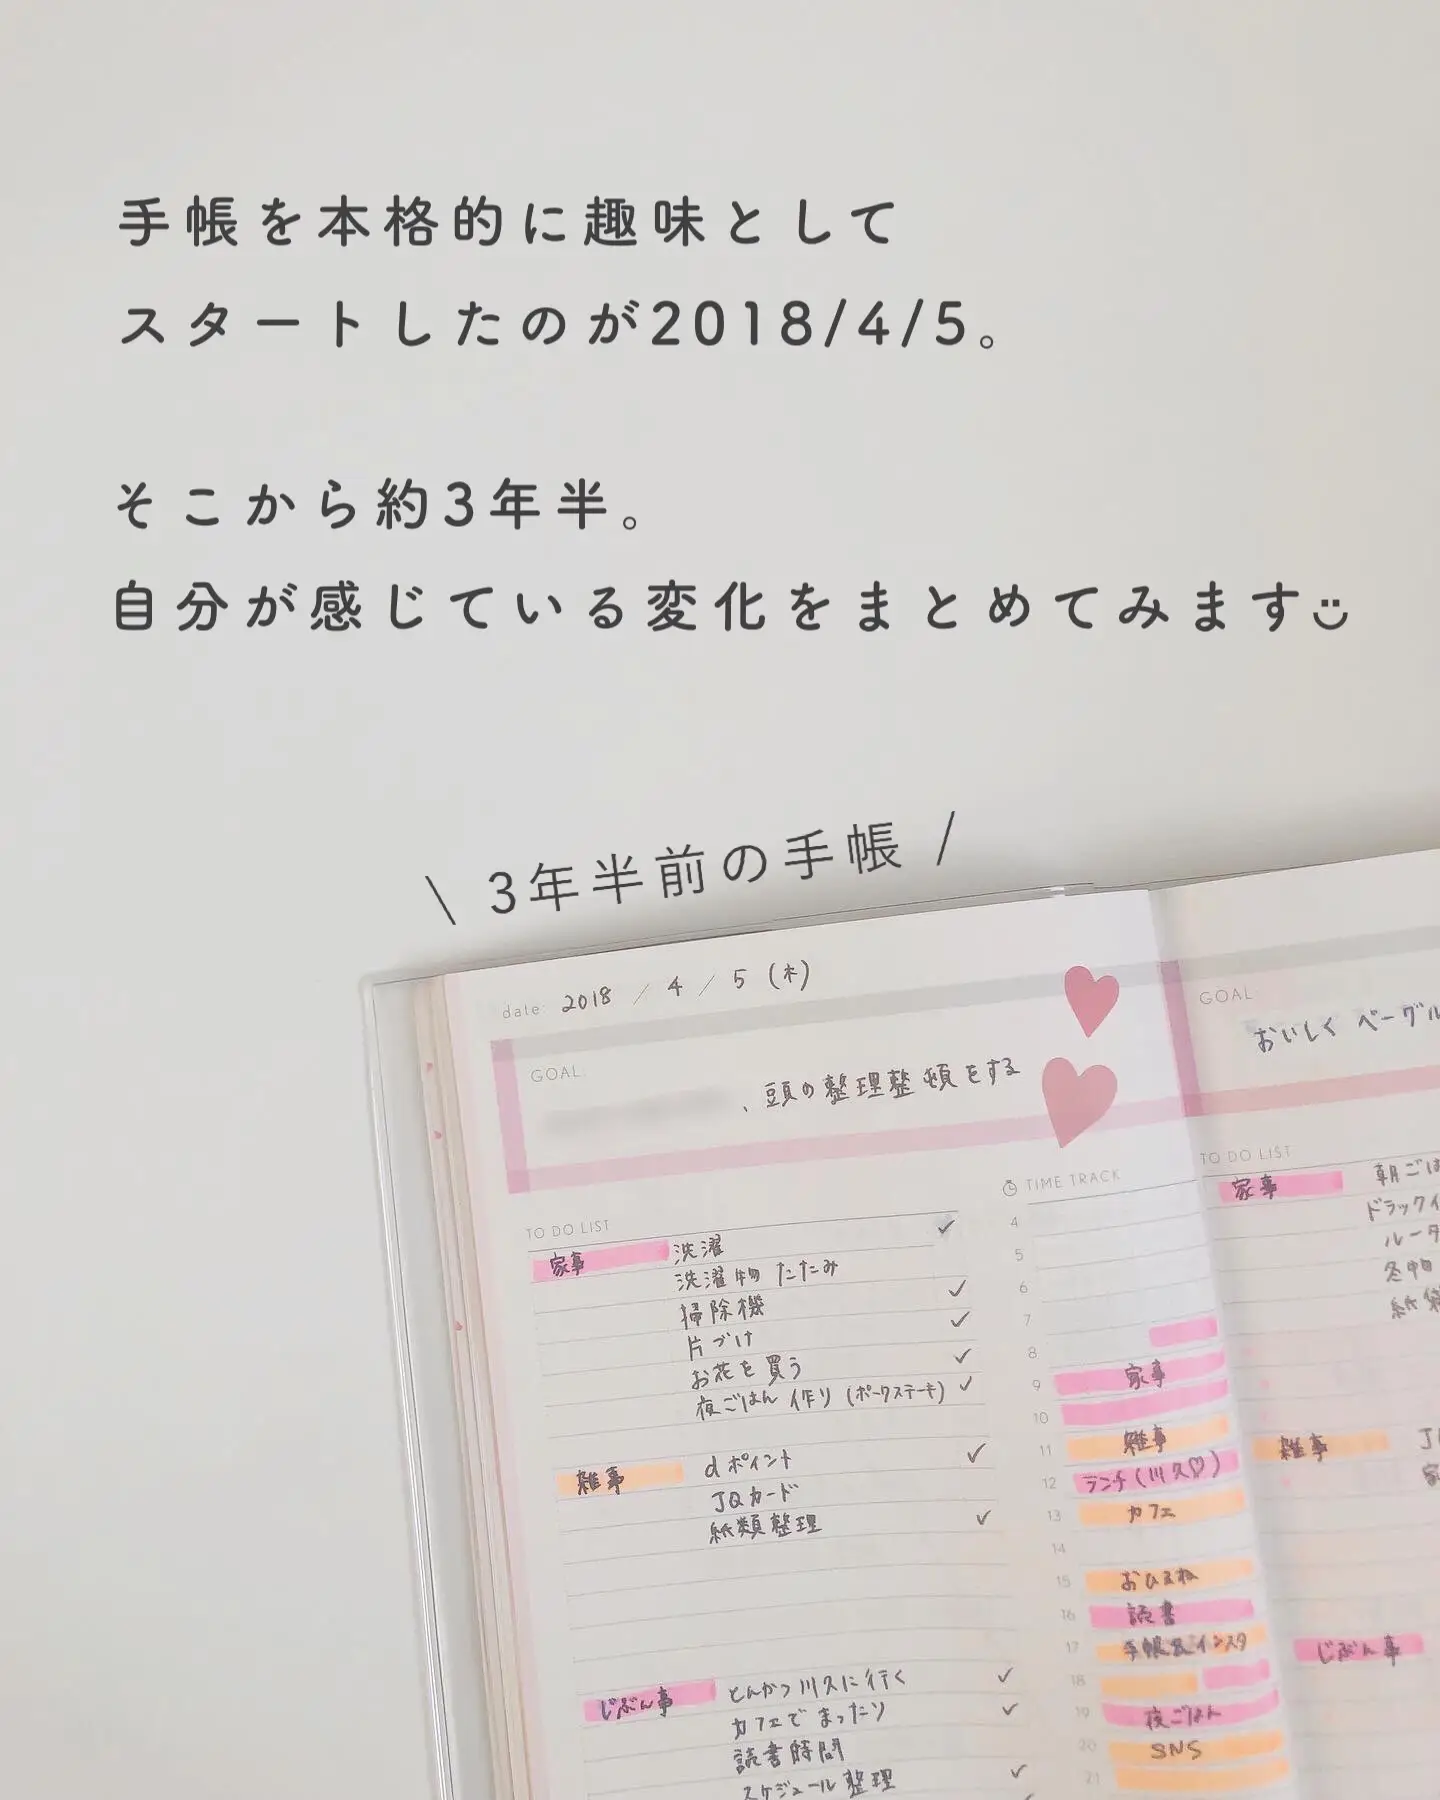 手帳を本格的に趣味として
スタートしたのが2018/4/5。
そこから約3年半。
自分が感じている変化をまとめてみます
\ 3年半前の手帳 /
date: 2018 / 4 / 5 (木)
GOAL:
、頭の整理整頓をする
TO DO LIST
家事 洗濯 ✓
洗濯物たたみ
掃除機 ✓
片づけ ✓
お花を買う ✓
夜ごはん作り (ポークステーキ) ✓
雑事 dポイント ✓
JQカード
紙類整理 ✓
じぶん事 とんかつ川久に行く ✓
カフェでまったり ✓
読書時間
スケジュール整理 ✓
TIME TRACK
4
5
6
7
8
9 家事
10
11 雑事
12 ランチ(川久♡)
13 カフェ
14
15 おひるね
16 読書
17 手帳&インスタ
18
19 夜ごはん
20 SNS
21
GOAL
おいしくベーグル
TO DO LIST
家事 朝ごは
ドラックイ
ルータ
紙袋
雑事
じぶん事